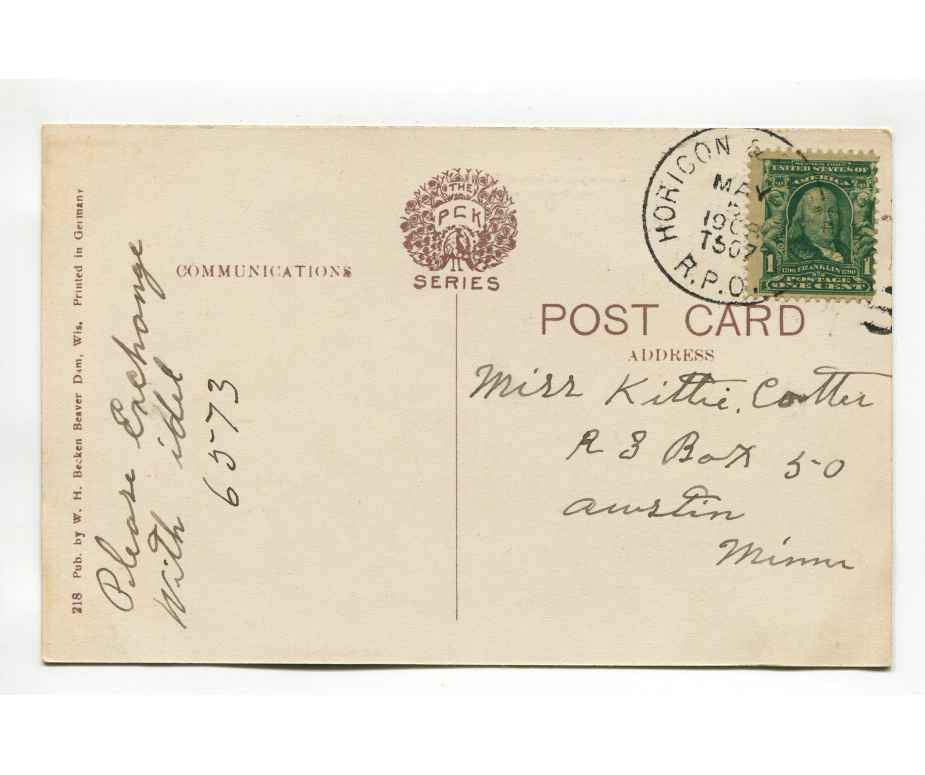 218 Pub. by W. H. Becken Beaver Dam, Wis. Printed in Germany
Please Exchange
With idel
6573
COMMUNICATIONS
THE
PCK
SERIES
HORICON &
MAY
190
T507
R.P.O.
UNITED STATES OF
AMERICA
1 FRANKLIN 1
POSTAGE
ONE CENT
POST CARD
ADDRESS
Miss Kittie. Cotter
R 3 Box 50
Austin
Minn